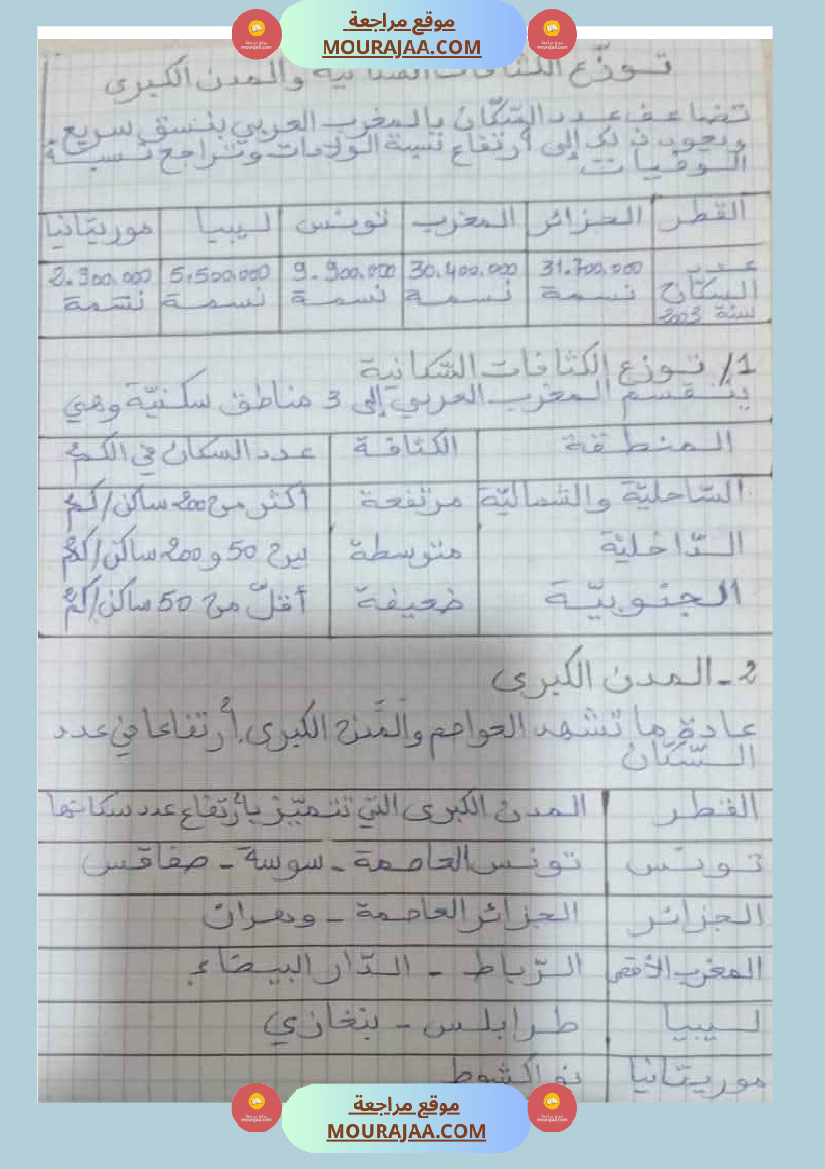 موقع مراجعة
MOURAJAA.COM
تـوزّع الكثافات السكانية والمدن الكبرى
تضاعف عدد السّكّان بالمغرب العربي بنسق سريع
ويعود ذلك إلى أرتفاع نسبة الولادات وتراجع نسبة
الوفيات
القطر الجزائر المغرب تونس ليبيا موريتانيا
عدد السكّان سنة 2003 31.700.000 نسمة 30.400.000 نسمة 9.900.000 نسمة 5.500.000 نسمة 2.900.000 نسمة
1/ تـوزع الكثافات السّكانية
ينقسم المغرب العربي إلى 3 مناطق سكنيّة وهي
المنطقة الكثافة عدد السكان في الكم²
السّاحليّة والشماليّة مرتفعة أكثر من 200 ساكن/كم²
الدّاخليّة متوسطة بين 50 و 200 ساكن/كم²
الجنوبيّة ضعيفة أقلّ من 50 ساكن/كم²
2 - المدن الكبرى
عادة ما تشهد العواصم والمدن الكبرى أرتفاعا في عدد
السّكّان
القطر المدن الكبرى التي تتميّز بأرتفاع عدد سكانها
تونس تونس العاصمة - سوسة - صفاقس
الجزائر الجزائر العاصمة - وهران
المغرب الأقصى الرّباط - الدّار البيضاء
ليبيا طرابلس - بنغازي
موريتانيا نواكشوط
موقع مراجعة
MOURAJAA.COM